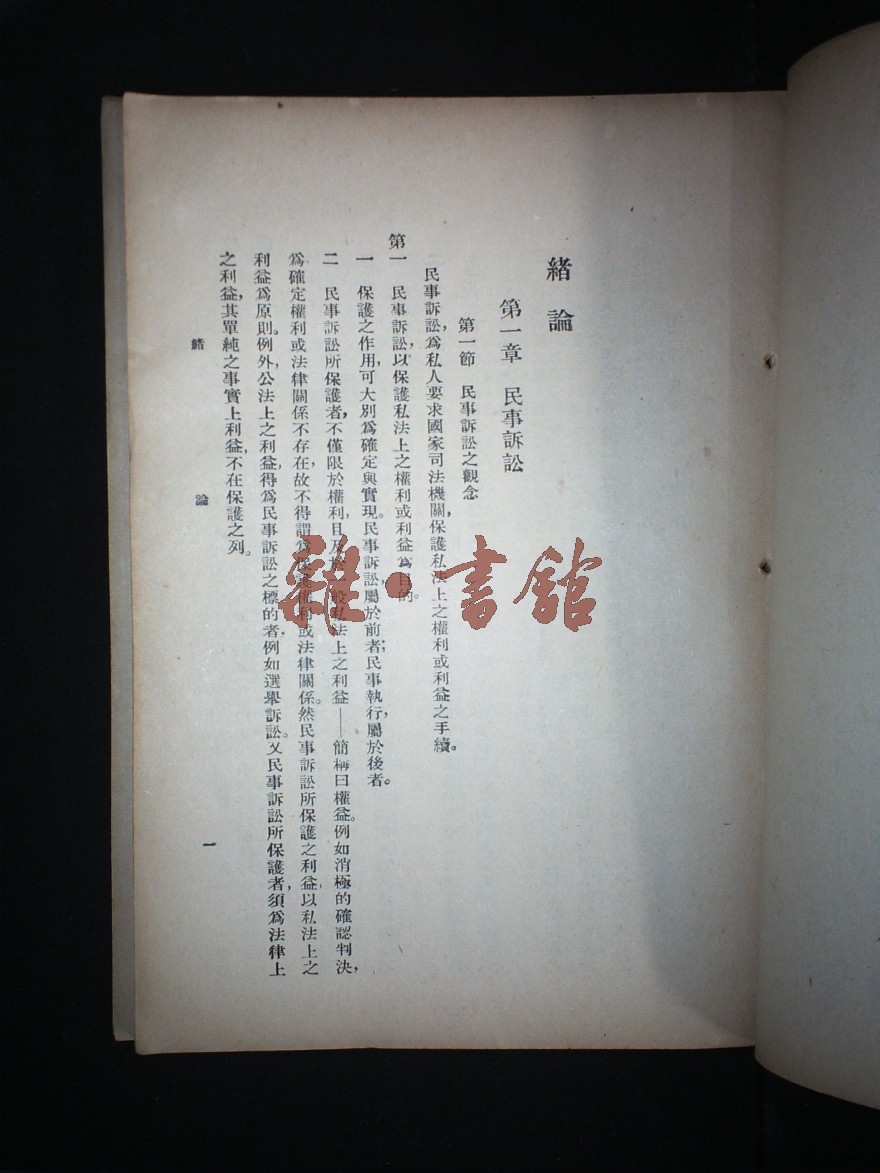 緒論
第一章 民事訴訟
第一節 民事訴訟之觀念
民事訴訟，為私人要求國家司法機關，保護私法上之權利或利益之手續。
第一 民事訴訟，以保護私法上之權利或利益為目的。
一 保護之作用，可大別為確定與實現。民事訴訟，屬於前者；民事執行，屬於後者。
二 民事訴訟所保護者，不僅限於權利，且及於一般私法上之利益——簡稱曰權益。例如消極的確認判決，
為確定權利或法律關係不存在，故不得謂為保護權利或法律關係。然民事訴訟所保護之利益，以私法上之
利益為原則。例外，公法上之利益，得為民事訴訟之標的者，例如選舉訴訟。又民事訴訟所保護者，須為法律上
之利益，其單純之事實上利益，不在保護之列。
緒論
一
雜·書館